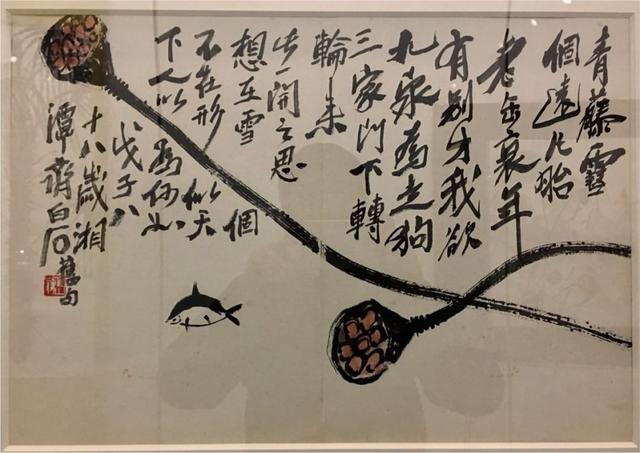 青藤雪
個遠凡胎
老缶衰年
有別才我欲
九泉為走狗
三家門下轉
輪来
此一開之思
想在雪個
不在形似天
下人以為何如
戊子八
十八歲湘
潭齊白石
舊句